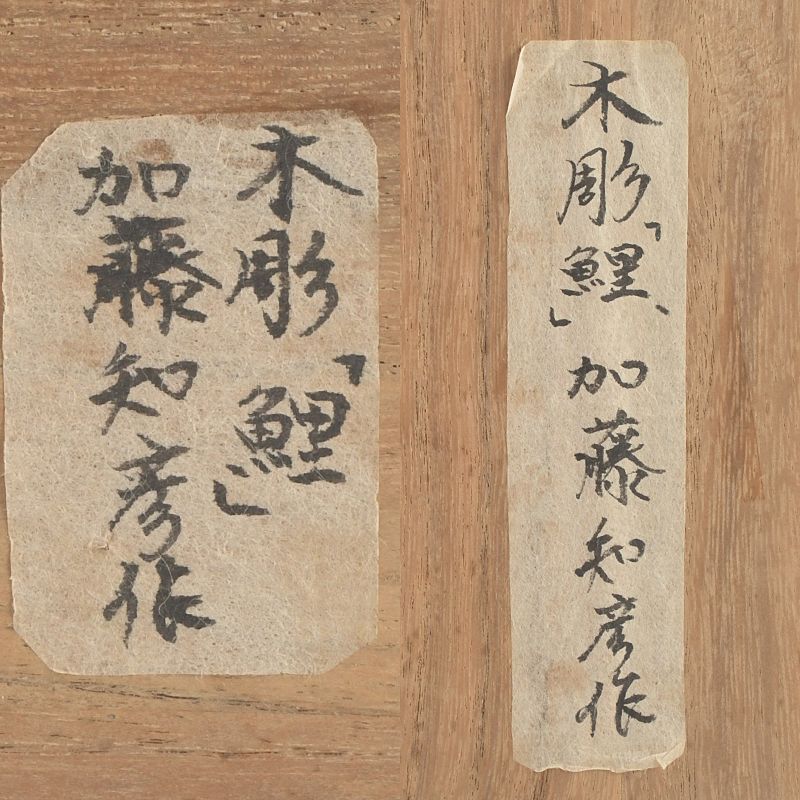 木彫「鯉」
加藤知彦作
木彫「鯉」加藤知彦作